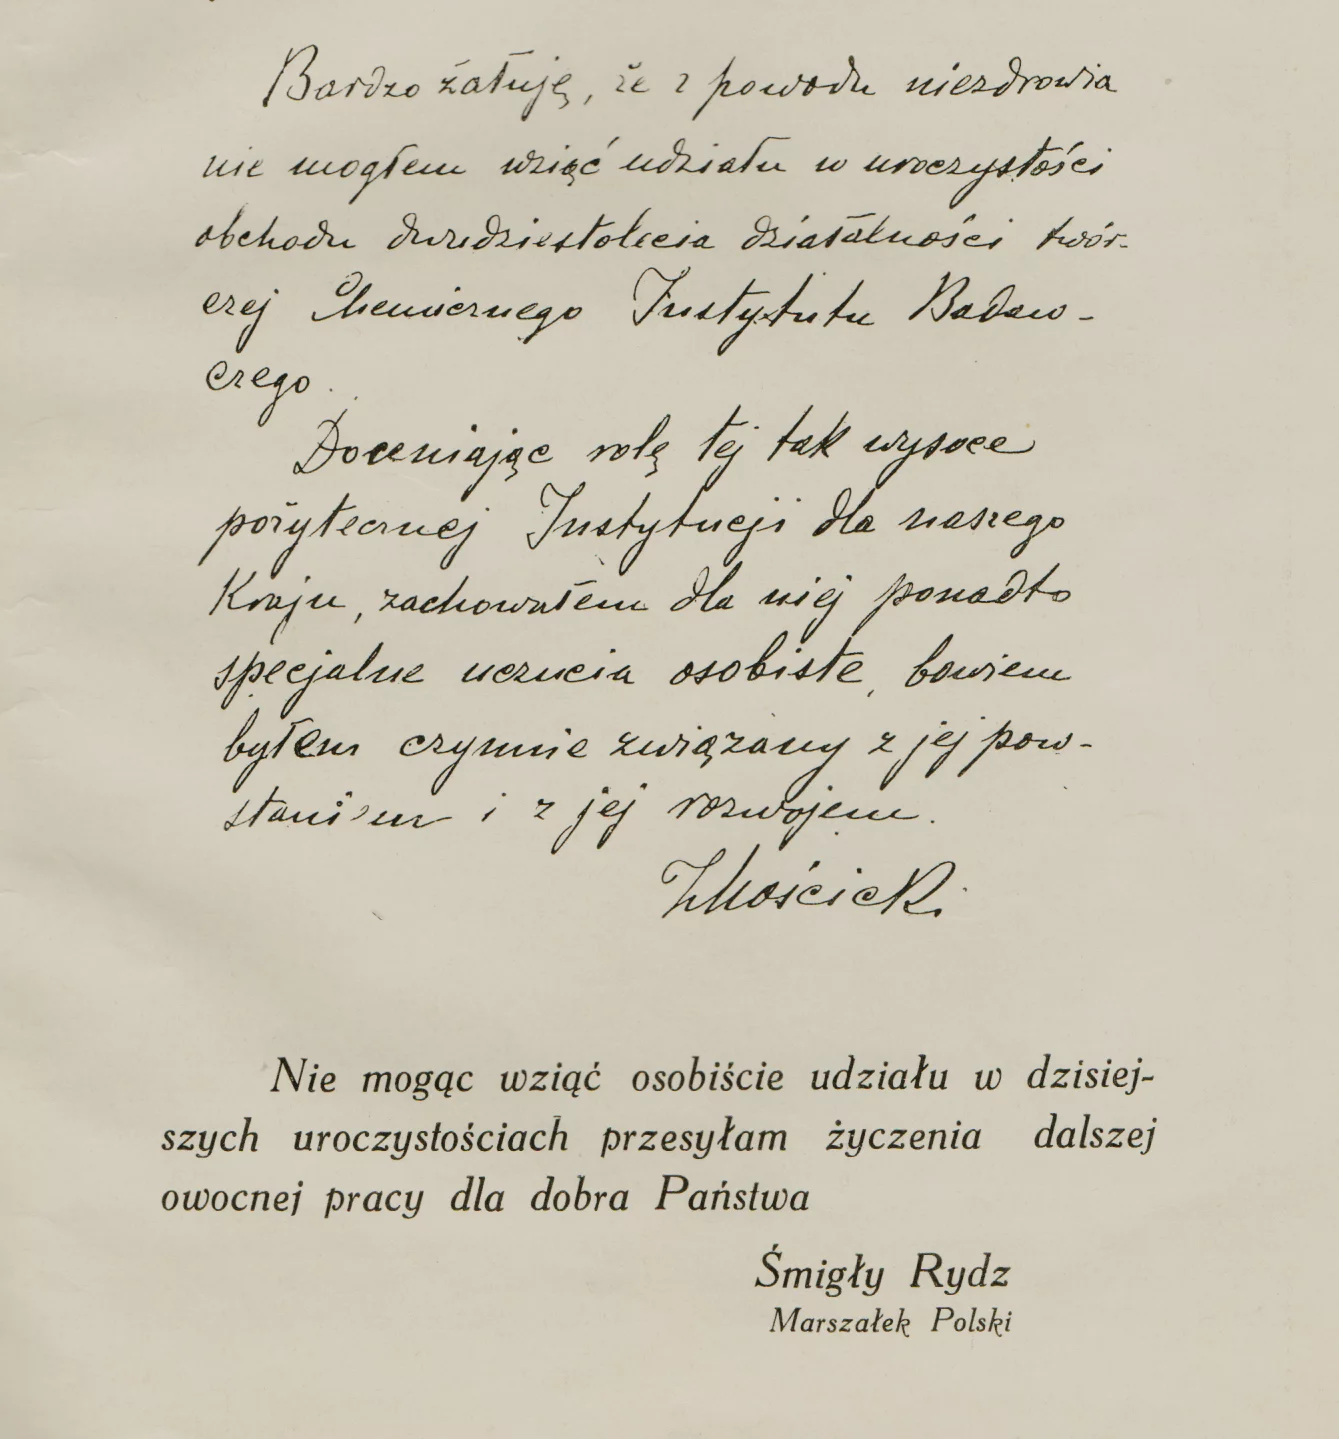 Bardzo żałuję, że z powodu niezdrowia
nie mogłem wziąć udziału w uroczystości
obchodu dwudziestolecia działalności twór-
czej Chemicznego Instytutu Badaw-
czego.
Doceniając rolę tej tak wysoce
pożytecznej Instytucji dla naszego
Kraju, zachowałem dla niej ponadto
specjalne uczucia osobiste, bowiem
byłem czynnie związany z jej pow-
staniem i z jej rozwojem.
IMościcki
Nie mogąc wziąć osobiście udziału w dzisiej-
szych uroczystościach przesyłam życzenia dalszej
owocnej pracy dla dobra Państwa
Śmigły Rydz
Marszałek Polski